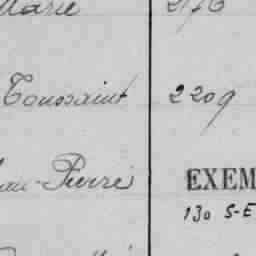 Marie
Toussaint 2209
Pierre EXEM
130 S-E